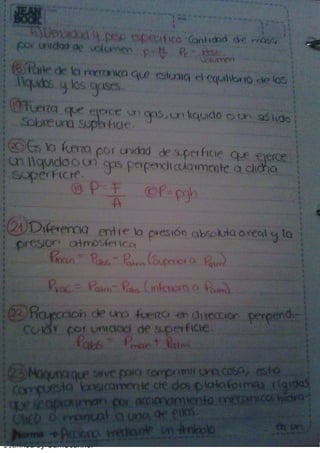 JEAN
BOOK
h) Densidad y peso específico Cantidad de masa
por unidad de volumen ρ=m/v Pe = peso/volumen
⑱ Parte de la mecánica que estudia el equilibrio de los
líquidos y los gases.
⑲ Fuerza que ejerce un gas, un líquido o un sólido
sobre una superficie.
⑳ Es la fuerza por unidad de superficie que ejerce
un líquido o un gas perpendicularmente a dicha
superficie.
P = F/A P = ρgh
㉑ Diferencia entre la presión absoluta o real y la
presión atmosférica
Pman = Pabs - Patm (Superior a Patm)
Pvac = Patm - Pabs (inferiores a Patm)
㉒ Proyección de una fuerza en dirección perpendi-
cular por unidad de superficie.
Pabs = Pman + Patm
㉓ Máquina que sirve para comprimir una cosa, esta
compuesta básicamente de dos plataformas rígidas
que se aproximan por accionamiento mecánico, hidrá-
ulico o manual a una de ellas.
Acciona mediante un émbolo en un